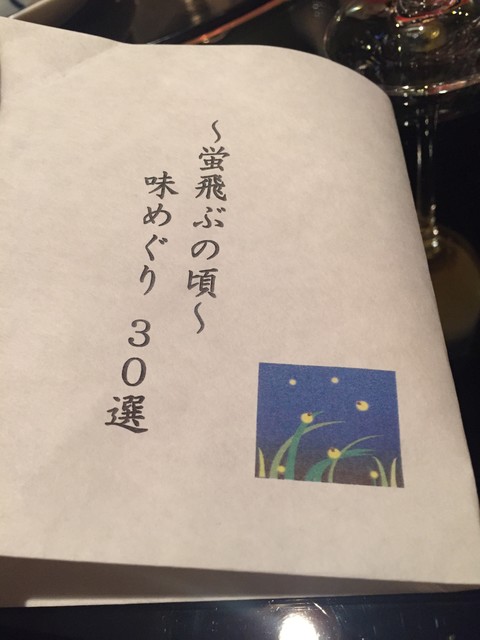 ～蛍飛ぶの頃～
味めぐり 30選